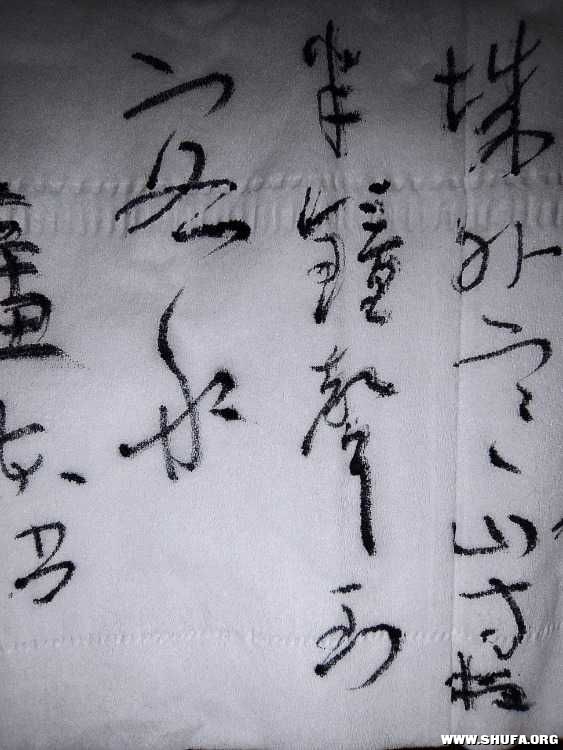 城外寒山寺
半鐘聲到
客船
书
WWW.SHUFA.ORG